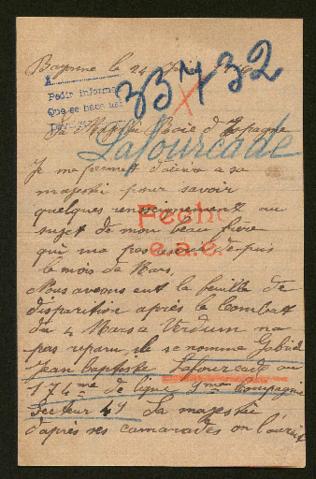 Bayonne le 24
33732
Pedir informes
Que se hace
Sa Majesté Le Roi d'Espagne
Lafourcade
Je me permet d'écrire a sa
majesté pour savoir
quelques renseignement au
sujet de mon beau frère
Fecho
e.a.c.
qui ma pas ecrit depuis
le mois de Mars.
Nous avons eut la feuille de
disparition après le Combat
du 4 Mars a Verdum na
pas reparu, il se nomme Gabriel
Jean baptiste Lafourcade au
174me de ligne 7me Compagnie
Secteur 41 Sa majesté
d'après ses camarades on l'aurait